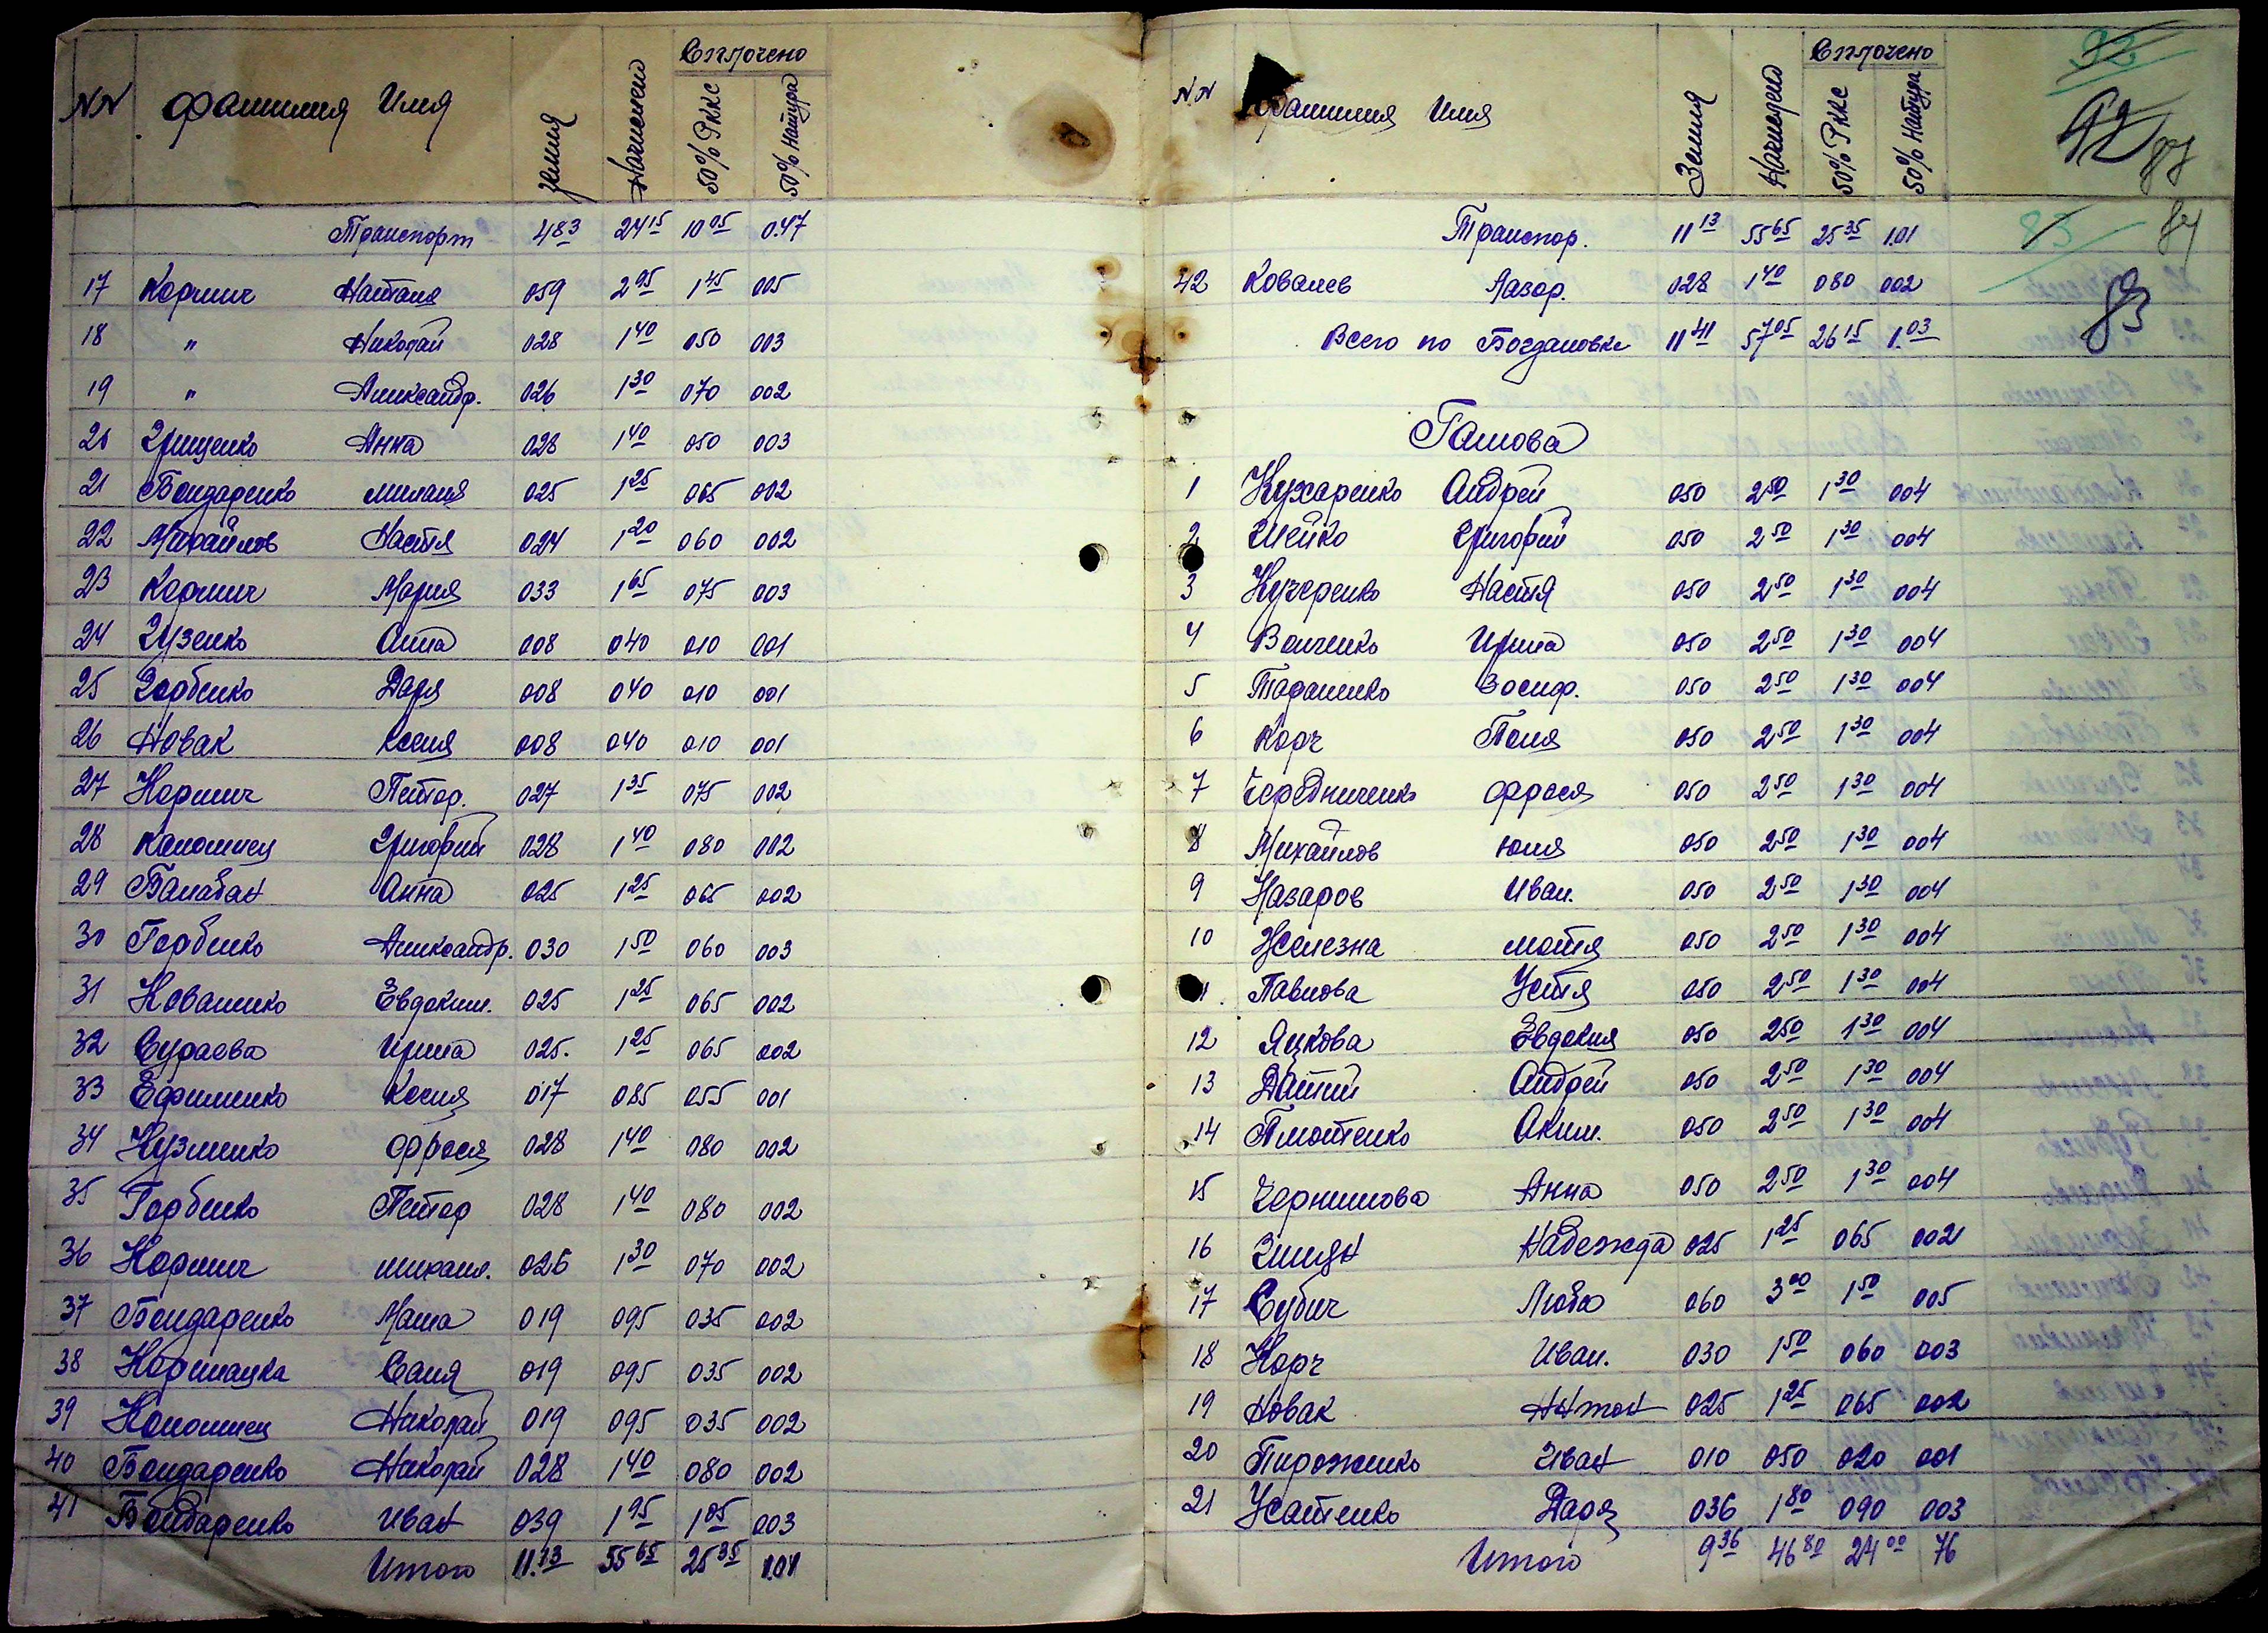 NN Фамилия Имя земля Начислено Оплочено 50% РККС 50% Натура
Транспорт 4 83 24 15 10 05 0.47
17 Кормич Наталя 059 2 95 1 45 005
18 " Николай 028 1 40 050 003
19 " Александр. 026 1 30 070 002
20 Грищенко Анна 028 1 40 050 003
21 Бондаренко Миланя 025 1 25 065 002
22 Михайлов Настя 024 1 20 060 002
23 Кормич Мария 033 1 65 075 003
24 Гузенко Анна 008 040 010 001
25 Горбенко Даря 008 040 010 001
26 Новак Ксеня 008 040 010 001
27 Кормич Петтор. 027 1 35 075 002
28 Каломиец Григорий 028 1 40 080 002
29 Балабан Анна 025 1 25 065 002
30 Горбенко Александр. 030 1 50 060 003
31 Коваленко Евдоким. 025 1 25 065 002
32 Сураева Ирина 025. 1 25 065 002
33 Ефименко Ксеня 017 085 055 001
34 Кузменко Фрося 028 1 40 080 002
35 Горбенко Петтор 028 1 40 080 002
36 Кормич Михаил. 026 1 30 070 002
37 Бондаренко Маша 019 095 035 002
38 Кормацка Саня 019 095 035 002
39 Коломиец Николай 019 095 035 002
40 Бондаренко Николай 028 1 40 080 002
41 Бондаренко Иван 039 1 95 1 05 003
Итого 11.13 55 65 25 35 1.01
N.N Фамилия Имя Земля Начислено Оплочено 50% РККС 50% Натура
92
92
87
Транспор. 11 13 55 65 25 35 1.01
83 84
42 Ковалев Лазор. 028 1 40 080 002
83
Всего по Богдановке 11 41 57 05 26 15 1.03
Гашова
1 Кухаренко Андрей 050 2 50 1 30 004
2 Шейко Григорий 050 2 50 1 30 004
3 Кучеренко Настя 050 2 50 1 30 004
4 Вольченко Ирина 050 2 50 1 30 004
5 Тараненко Зосиф. 050 2 50 1 30 004
6 Корч Поля 050 2 50 1 30 004
7 Чередниченко Фрося 050 2 50 1 30 004
8 Михайлов Юля 050 2 50 1 30 004
9 Назаров Иван. 050 2 50 1 30 004
10 Железна Мотя 050 2 50 1 30 004
Павлова Устя 050 2 50 1 30 004
12 Яцкова Евдокия 050 250 1 30 004
13 Андрей 050 2 50 1 30 004
14 Аким. 050 2 50 1 30 004
15 Чернишова Анна 050 2 50 1 30 004
16 Надежда 025 1 25 065 002
17 Субич Люба 060 3 00 1 50 005
18 Корч Иван. 030 1 50 060 003
19 Новак Антон 025 1 25 065 002
20 Пироженко Иван 010 050 020 001
21 Усатенко Даря 036 1 80 090 003
Итого 9 36 46 80 24 00 76